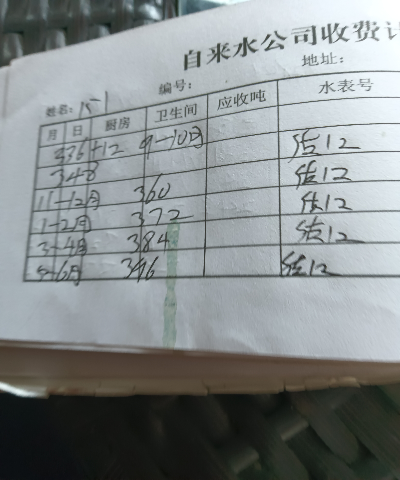 自来水公司收费
编号: 地址:
姓名: 15-1
月 日 厨房 卫生间 应收吨 水表号
336+12 9-10月 结12
348 结12
11-12月 360 结12
1-2月 372 结12
3-4月 384
5-6月 396 结12